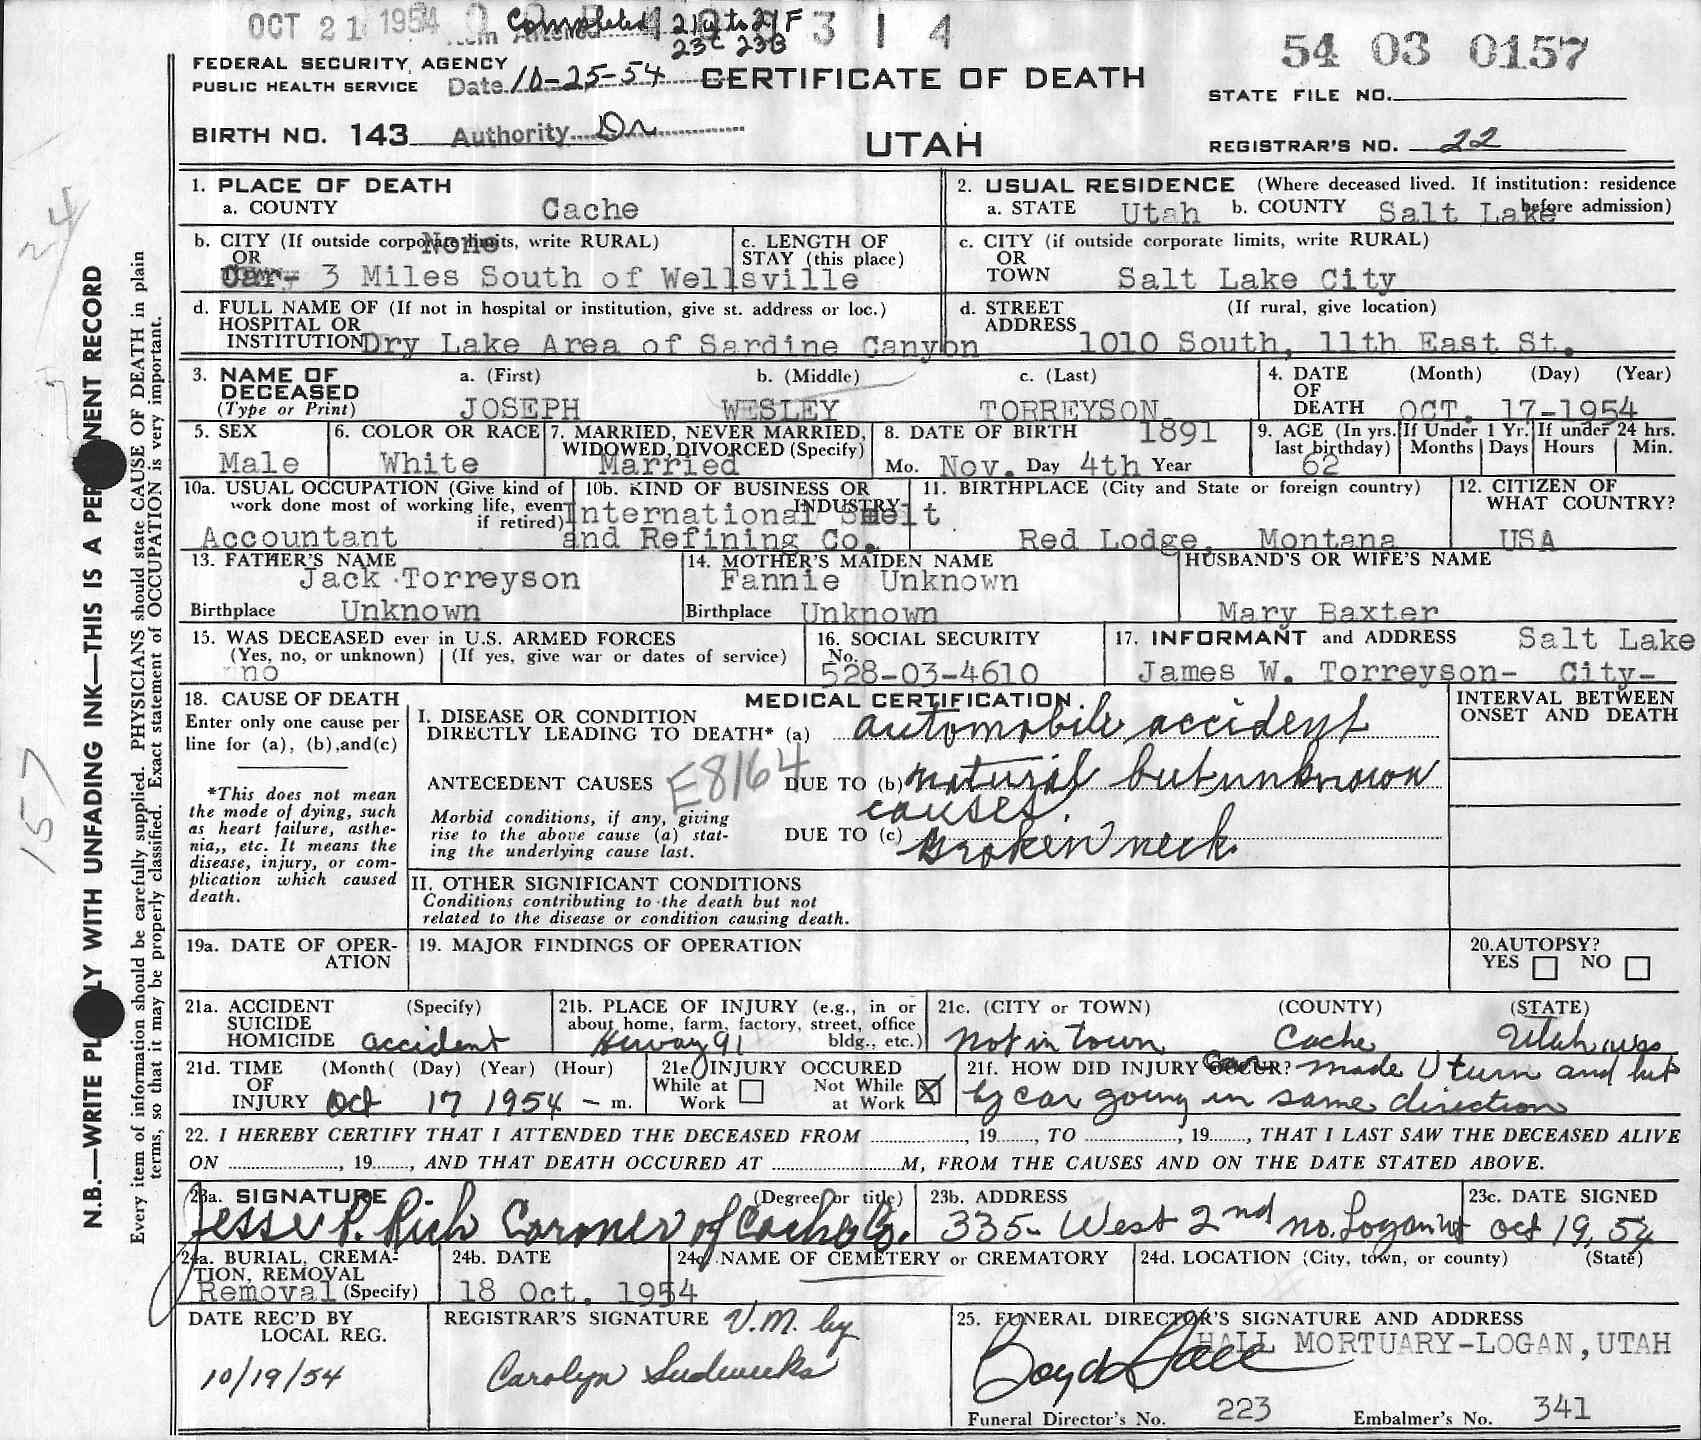 OCT 21 1954 Completed 21a to 21F
23c 23B
314
54 03 0157
FEDERAL SECURITY AGENCY
PUBLIC HEALTH SERVICE Date 10-25-54 CERTIFICATE OF DEATH
STATE FILE NO.
BIRTH NO. 143 Authority Dr UTAH
REGISTRAR'S NO. 22
1. PLACE OF DEATH
a. COUNTY Cache
2. USUAL RESIDENCE (Where deceased lived. If institution: residence before admission)
a. STATE Utah b. COUNTY Salt Lake
b. CITY (If outside corporate limits, write RURAL) None
OR
TOWN 3 Miles South of Wellsville
c. LENGTH OF
STAY (this place)
c. CITY (if outside corporate limits, write RURAL)
OR
TOWN Salt Lake City
d. FULL NAME OF (If not in hospital or institution, give st. address or loc.)
HOSPITAL OR
INSTITUTION Dry Lake Area of Sardine Canyon
d. STREET (If rural, give location)
ADDRESS 1010 South, 11th East St.
3. NAME OF
DECEASED
(Type or Print)
a. (First) b. (Middle) c. (Last)
JOSEPH WESLEY TORREYSON
4. DATE (Month) (Day) (Year)
OF
DEATH OCT. 17-1954
5. SEX
Male
6. COLOR OR RACE
White
7. MARRIED, NEVER MARRIED,
WIDOWED, DIVORCED (Specify)
Married
8. DATE OF BIRTH 1891
Mo. Nov. Day 4th Year
9. AGE (In yrs. last birthday)
62
If Under 1 Yr.
Months Days
If under 24 hrs.
Hours Min.
10a. USUAL OCCUPATION (Give kind of
work done most of working life, even
if retired)
Accountant
10b. KIND OF BUSINESS OR
INDUSTRY
International Smelt
and Refining Co.
11. BIRTHPLACE (City and State or foreign country)
Red Lodge, Montana
12. CITIZEN OF
WHAT COUNTRY?
USA
13. FATHER'S NAME
Jack Torreyson
Birthplace Unknown
14. MOTHER'S MAIDEN NAME
Fannie Unknown
Birthplace Unknown
HUSBAND'S OR WIFE'S NAME
Mary Baxter
15. WAS DECEASED ever in U.S. ARMED FORCES
(Yes, no, or unknown) (If yes, give war or dates of service)
no
16. SOCIAL SECURITY
No.
528-03-4610
17. INFORMANT and ADDRESS Salt Lake
James W. Torreyson- City-
18. CAUSE OF DEATH
Enter only one cause per
line for (a), (b), and (c)
*This does not mean
the mode of dying, such
as heart failure, asthe-
nia,, etc. It means the
disease, injury, or com-
plication which caused
death.
MEDICAL CERTIFICATION
INTERVAL BETWEEN
ONSET AND DEATH
I. DISEASE OR CONDITION
DIRECTLY LEADING TO DEATH* (a) automobile accident
ANTECEDENT CAUSES E8164 DUE TO (b) natural but unknown
causes.
Morbid conditions, if any, giving
rise to the above cause (a) stat-
ing the underlying cause last.
DUE TO (c) Broken neck.
II. OTHER SIGNIFICANT CONDITIONS
Conditions contributing to the death but not
related to the disease or condition causing death.
19a. DATE OF OPER-
ATION
19. MAJOR FINDINGS OF OPERATION
20. AUTOPSY?
YES NO
21a. ACCIDENT (Specify)
SUICIDE
HOMICIDE accident
21b. PLACE OF INJURY (e.g., in or
about home, farm, factory, street, office
bldg., etc.)
Hiway 91
21c. (CITY or TOWN) (COUNTY) (STATE)
not in town Cache Utah
21d. TIME (Month) (Day) (Year) (Hour)
OF
INJURY Oct 17 1954 - m.
21e. INJURY OCCURED
While at Work Not While at Work X
21f. HOW DID INJURY OCCUR? Car made U turn and hit
by car going in same direction
22. I HEREBY CERTIFY THAT I ATTENDED THE DECEASED FROM ............, 19......, TO ............, 19......, THAT I LAST SAW THE DECEASED ALIVE
ON ............, 19......, AND THAT DEATH OCCURED AT ............M, FROM THE CAUSES AND ON THE DATE STATED ABOVE.
23a. SIGNATURE (Degree or title)
Jesse P. Rich Coroner of Cache Co.
23b. ADDRESS
335- West 2nd no. Logan Ut
23c. DATE SIGNED
Oct 19, 54
24a. BURIAL, CREMA-
TION, REMOVAL
Removal (Specify)
24b. DATE
18 Oct. 1954
24c. NAME OF CEMETERY or CREMATORY
24d. LOCATION (City, town, or county) (State)
DATE REC'D BY
LOCAL REG.
10/19/54
REGISTRAR'S SIGNATURE V.M. by
Carolyn Sudweeks
25. FUNERAL DIRECTOR'S SIGNATURE AND ADDRESS
Boyd Hall HALL MORTUARY-LOGAN, UTAH
Funeral Director's No. 223 Embalmer's No. 341
N.B.—WRITE PLAINLY WITH UNFADING INK—THIS IS A PERMANENT RECORD
Every item of information should be carefully supplied. PHYSICIANS should state CAUSE OF DEATH in plain
terms, so that it may be properly classified. Exact statement of OCCUPATION is very important.
157